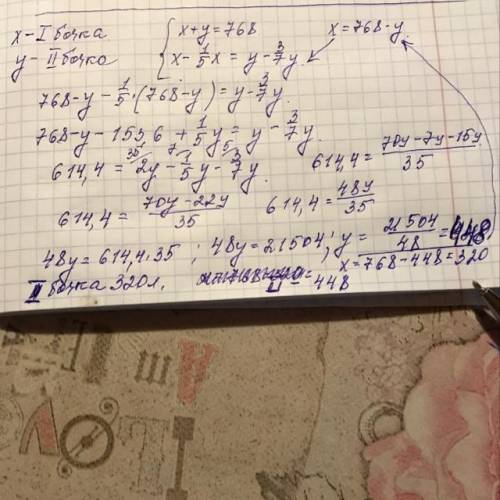 x - I бочка { x+y=768 x=768-y
y - II бочка { x - 1/5 x = y - 3/7 y
768-y - 1/5 · (768-y) = y - 3/7 y
768-y - 153 6 + 1/5 y = y - 3/7 y
614,4 = 2y - 1/5 y - 3/7 y 614,4 = (70y-7y-15y)/35
614,4 = (70y-22y)/35 614,4 = 48y/35
48y = 614,4·35 ; 48y = 21504 ; y = 21504/48 = 448
x = 768-448 = 320
II бочка 320 л, = 448